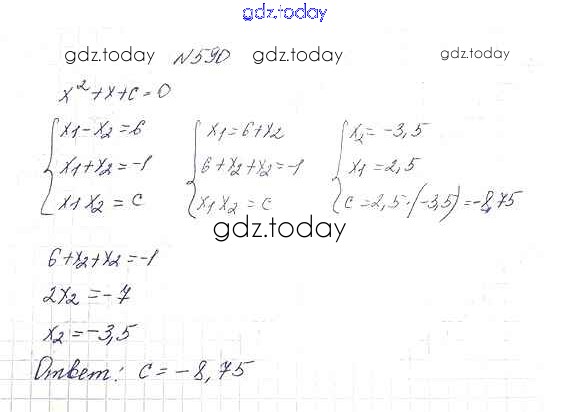 gdz.today
gdz.today №590 gdz.today gdz.today
x²+x+c=0
x1-x2=6 x1=6+x2 x2=-3,5
x1+x2=-1 6+x2+x2=-1 x1=2,5
x1x2=c x1x2=c c=2,5·(-3,5)=-8,75
gdz.today
6+x2+x2=-1
2x2=-7
x2=-3,5
Ответ: c=-8,75